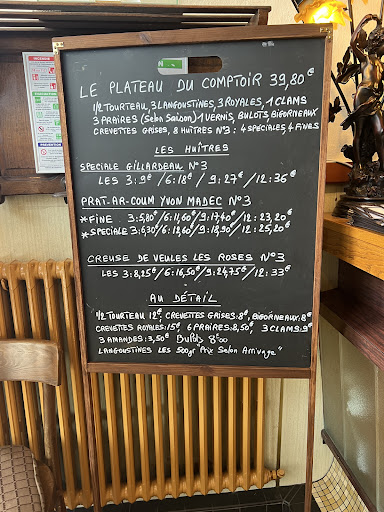 LE PLATEAU DU COMPTOIR 39,80€
1/2 TOURTEAU, 3 LANGOUSTINES, 3 ROYALES, 1 CLAMS
3 PRAIRES (Selon Saison) 1 VERNIS, BULOTS, BIGORNEAUX
CREVETTES GRISES, 8 HUÎTRES N°3 : 4 SPÉCIALES, 4 FINES
LES HUÎTRES
SPECIALE GILLARDEAU N°3
LES 3:9€ / 6:18€ / 9:27€ / 12:36€
PRAT-AR-COUM YVON MADEC N°3
*FINE 3:5,80€/6:11,60€/9:17,40€/12:23,20€
*SPECIALE 3:6,30€/6:12,60€/9:18,90€/12:25,20€
CREUSE DE VEULES LES ROSES N°3
LES 3:8,25€/6:16,50€/9:24,75€/12:33€
AU DÉTAIL
1/2 TOURTEAU 12€, CREVETTES GRISES:8€, BIGORNEAUX:8€
CREVETTES ROYALES:15€, 6 PRAIRES:8,50€, 3 CLAMS:9€
3 AMANDES:3,50€ Bulots 8€00
LANGOUSTINES LES 500gr "Prix Selon Arrivage"
INCENDIE
PRÉVENTION